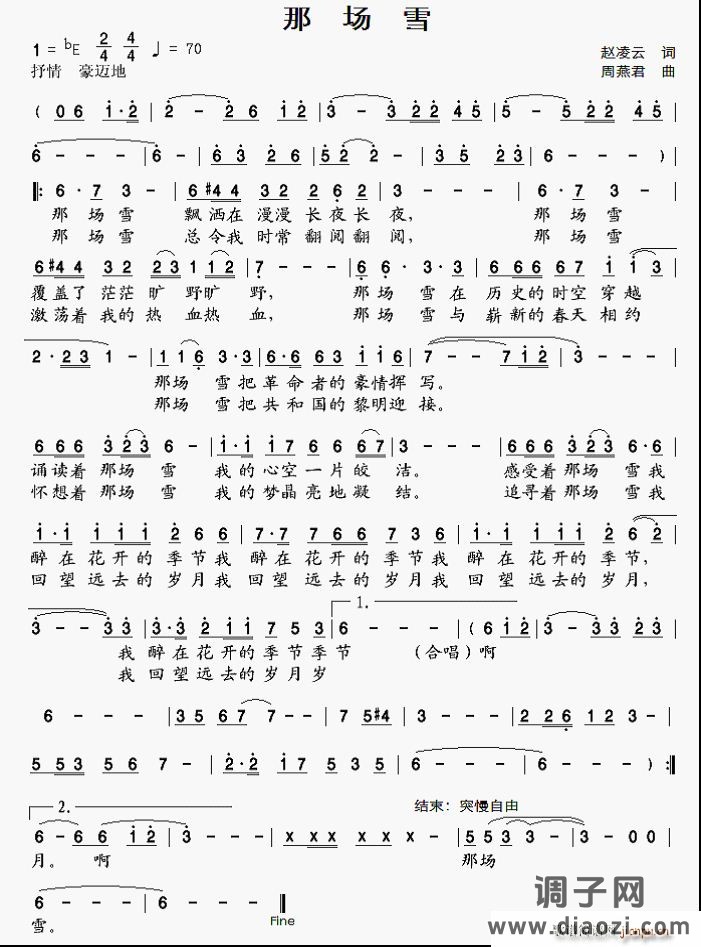 那 场 雪
1 = bE 2/4 4/4 ♩ = 70
赵凌云 词
抒情 豪迈地
周燕君 曲
( 0 6 1·2 | 2 - 2 6 1 2 | 3 - 3 2 2 4 5 | 5 - 5 2 2 4 5 |
6 - - - | 6 - - - | 6 3 2 6 | 5 2 2 - | 3 5 2 3 | 6 - - - ) |
|: 6·7 3 - | 6 #4 4 3 2 2 6 2 | 3 - - - | 6·7 3 - |
那 场 雪 飘洒在 漫漫 长夜长 夜, 那 场 雪
那 场 雪 总令我 时常 翻阅翻 阅, 那 场 雪
6 #4 4 3 2 2 3 1 1 2 | 7 - - - | 6·6 3·3 | 6 6 6 6 7 1 1 3 |
覆盖了 茫茫 旷 野旷 野, 那 场 雪在 历史的时空 穿越
激荡着 我的 热 血热 血, 那 场 雪与 崭新的春天 相约
2·2 3 1 - | 1 1 6 3·3 | 6·6 6 1 1 6 | 7 - - 7 1 2 | 3 - - - |
那场 雪把革命者的豪情挥 写。
那场 雪把共和国的黎明迎 接。
6 6 6 3 2 3 6 - | 1·1 1 7 6 6 7 | 3 - - - | 6 6 6 3 2 3 6·6 |
诵读着 那场 雪 我的心空一片皎 洁。 感受着 那场 雪我
怀想着 那场 雪 我的梦晶亮地凝 结。 追寻着 那场 雪我
1·1 1 1 1 2 6 6 | 7·7 7 7 6 7 3 6 | 1·1 1 1 1 2 6 2 |
醉在 花开的 季节我 醉在 花开的 季节我 醉在 花开的 季节,
回望 远去的 岁月我 回望 远去的 岁月我 回望 远去的 岁月,
1.
3 - - 3 3 | 3·3 2 1 1 7 5 3 | 6 - - - | ( 6 1 2 | 3 - - 3 3 |
我 醉在花开的季节季节 (合唱)啊
我 回望远去的岁月岁
6 - - - | 3 5 6 7 7 - | 7 5 #4 | 3 - - - | 2 2 6 1 2 3 - |
5 5 3 5 6 7 - | 2·2 1 7 5 3 | 6 - - - | 6 - - - ) :|
2.
结束: 突慢自由
6 - 6 6 1 2 | 3 - - - | x x x x | 3 - - - | 5 5 3 3 | 3 - 0 0 |
月。 啊 那场
6 - - - | 6 - - - ‖
雪。
Fine
调子网
www.diaozi.com